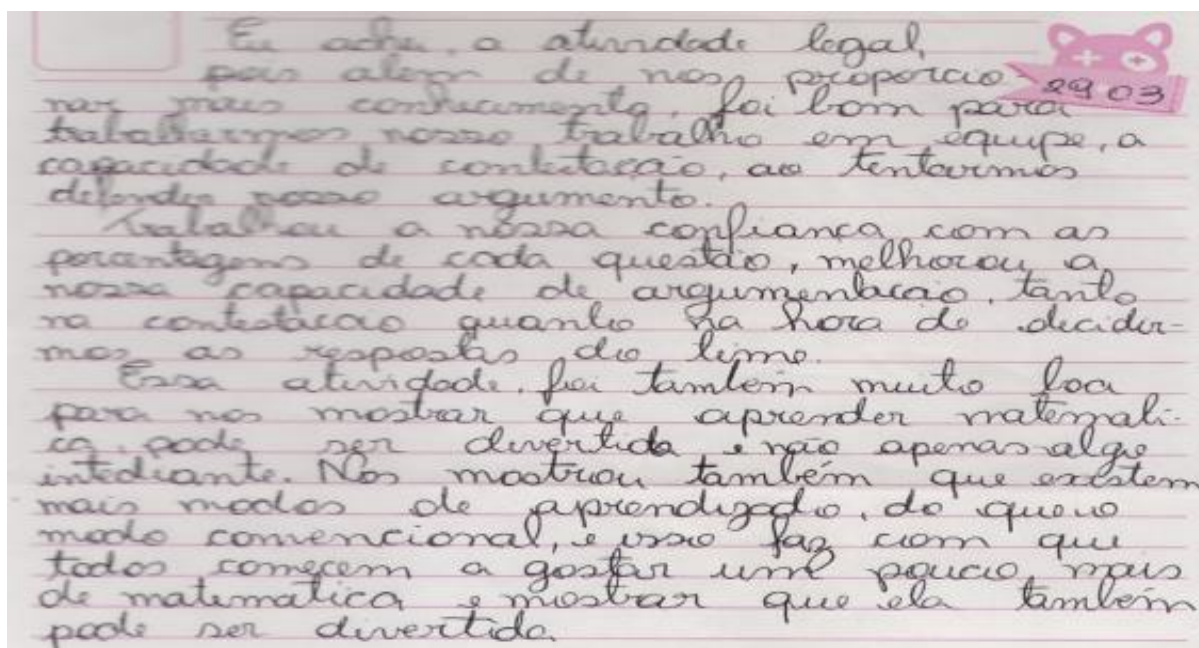 Eu achei, a atividade legal,
pois alem de nos proporcio-
29 03
nar mais conhecimento, foi bom para
trabalharmos nosso trabalho em equipe, a
capacidade de contestação, ao tentarmos
defender nosso argumento.
Trabalhou a nossa confiança com as
porcentagens de cada questão, melhorou a
nossa capacidade de argumentacao, tanto
na contestacao quanto na hora de decidir-
mos as respostas do time.
Essa atividade, foi também muito boa
para nos mostrar que aprender matemati-
ca, pode ser divertido e não apenas algo
intediante. Nos mostrou também que existem
mais modos de aprendizado, do que o
modo convencional, e isso faz com que
todos comecem a gostar um pouco mais
de matematica e mostrar que ela também
pode ser divertida.